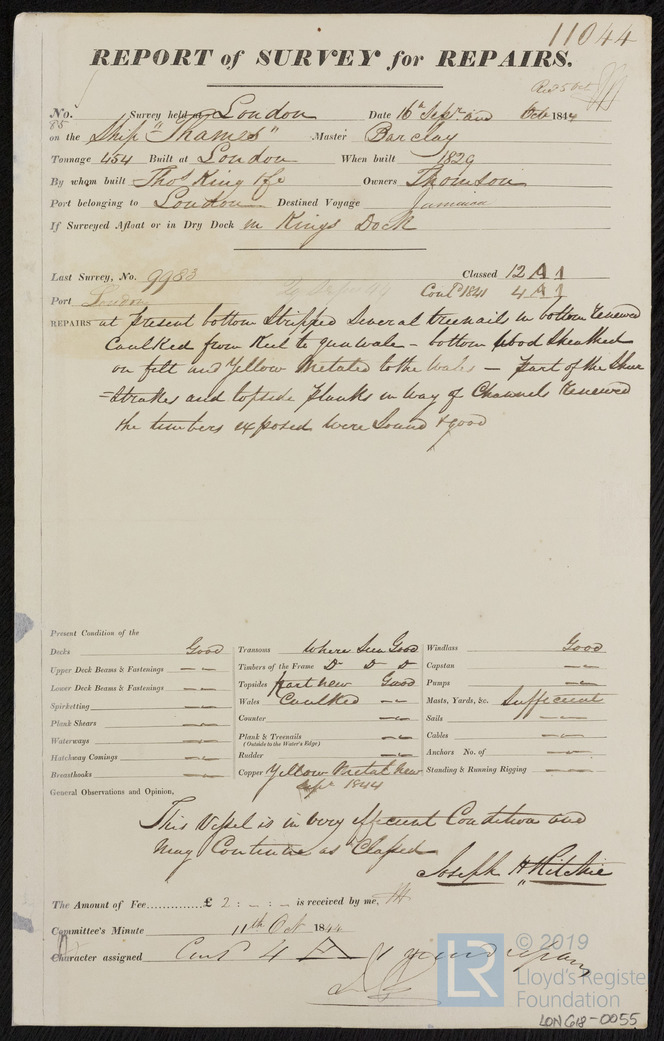 11044
REPORT of SURVEY for REPAIRS.
No. 85 Survey held at London Date 16th Sepr. and Octr. 1844
on the Ship "Thames" Master Barclay
Tonnage 454 Built at London When built 1829
By whom built Thos King & Co Owners Thomson
Port belonging to London Destined Voyage Jamaica
If Surveyed Afloat or in Dry Dock in Kings Dock
Last Survey, No. 9983 Classed 12 A 1
Port London Contd 1841 4 A 1
REPAIRS at present bottom Stripped Several treenails in bottom renewed
Caulked from Keel to gunwale - bottom wood Sheathed
on felt and Yellow Metaled to the Wales - part of the Sheer
=Strakes and topside planks in way of Channels renewed
the timbers exposed were Sound & good
Present Condition of the
Decks Good Transoms Where Seen Good Windlass Good
Upper Deck Beams & Fastenings — — Timbers of the Frame Do Do Do Capstan — —
Lower Deck Beams & Fastenings — — Topsides part new Good Pumps — —
Spirketting — — Wales Caulked — — Masts, Yards, &c. Sufficient
Plank Shears — — Counter — — Sails — —
Waterways — — Plank & Treenails (Outside to the Water's Edge) — — Cables — —
Hatchway Comings — — Rudder — — Anchors No. of — —
Breasthooks — — Copper Yellow Metal New Septr 1844 Standing & Running Rigging — —
General Observations and Opinion,
This Vessel is in very efficient Condition and
may Continue as Classed
Joseph H Ritchie
The Amount of Fee............... £ 2 : — : — is received by me,
Committee's Minute 11th Oct 1844
Character assigned Contd 4 A 1
© 2019
LR
Lloyd's Register
Foundation
LON 618-0055